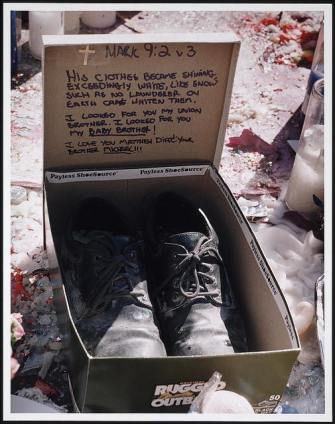 MARK 9:2 v3
HIS CLOTHES BECAME SHINING,
EXCEEDINGLY WHITE, LIKE SNOW
SUCH AS NO LAUNDERER ON
EARTH CAN WHITEN THEM.
I LOOKED FOR YOU MY UNION
BROTHER. I LOOKED FOR YOU
MY BABY BROTHER!
I LOVE YOU MATTHEW YOUR
BROTHER MICHAEL!!!
Payless ShoeSource
Payless ShoeSource
Payless ShoeSource
RUGGED
OUTBACK
50
BLACK